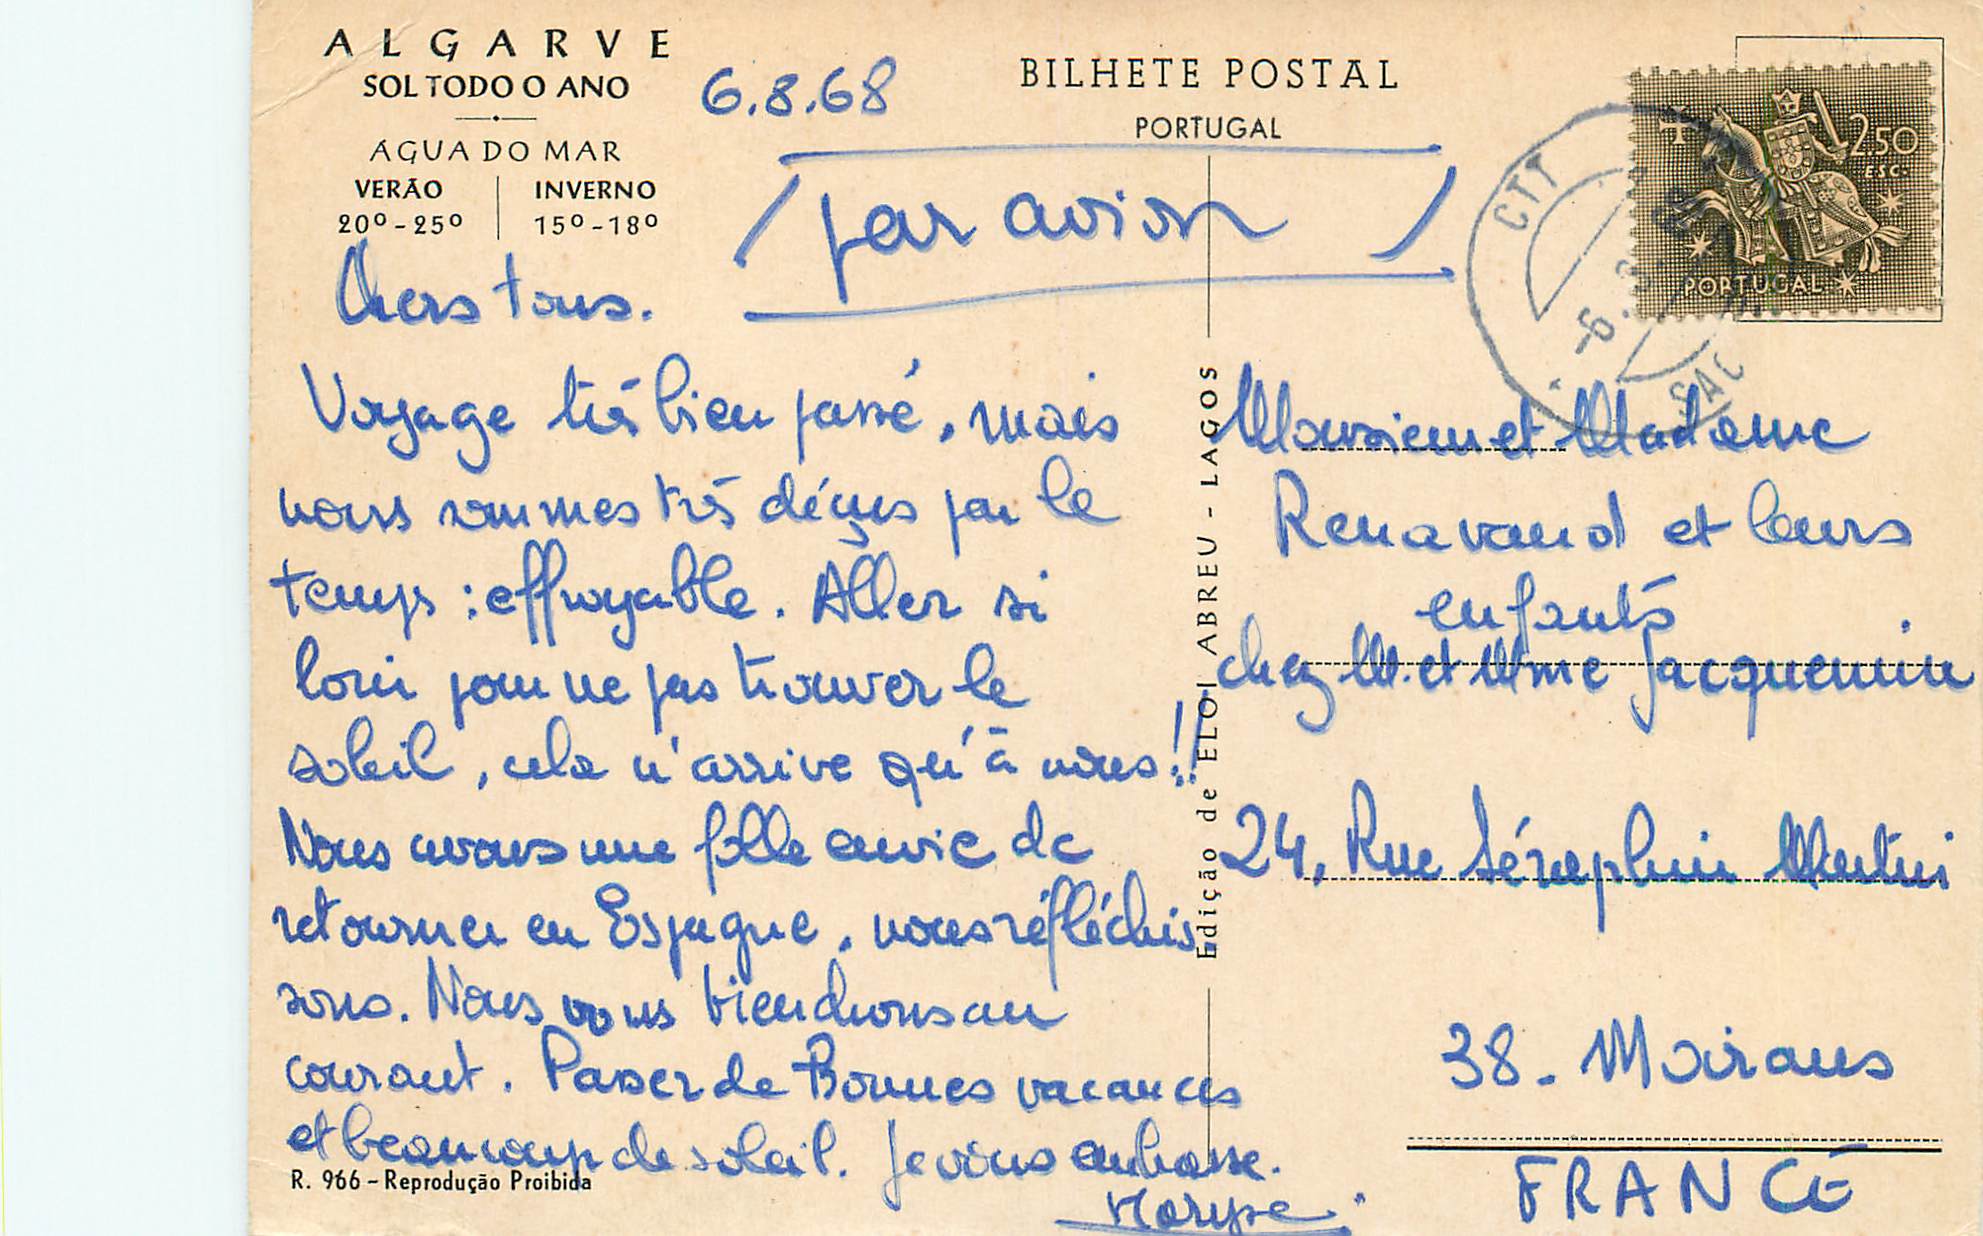 ALGARVE
SOL TODO O ANO
ÁGUA DO MAR
VERÃO
20º-25º
INVERNO
15º-18º
6.8.68
BILHETE POSTAL
PORTUGAL
par avion
2$50
ESC.
PORTUGAL
CTT
Chers tous.
Voyage très bien passé, mais
nous sommes très déçus par le
temps : effroyable. Aller si
loin pour ne pas trouver le
soleil, cela n'arrive qu'à nous!!
Nous avons une folle envie de
retourner en Espagne, nous réfléchis
sons. Nous vous tiendrons au
courant. Passez de Bonnes vacances
et beaucoup de soleil. Je vous embrasse.
Maryse
R. 966 - Reprodução Proibida
Edição de ELOI ABREU - LAGOS
Monsieur et Madame
Renavand et leurs
enfants
chez M. et Mme Jacquemin
24, Rue Séraphin Martin
38. Moirans
FRANCE